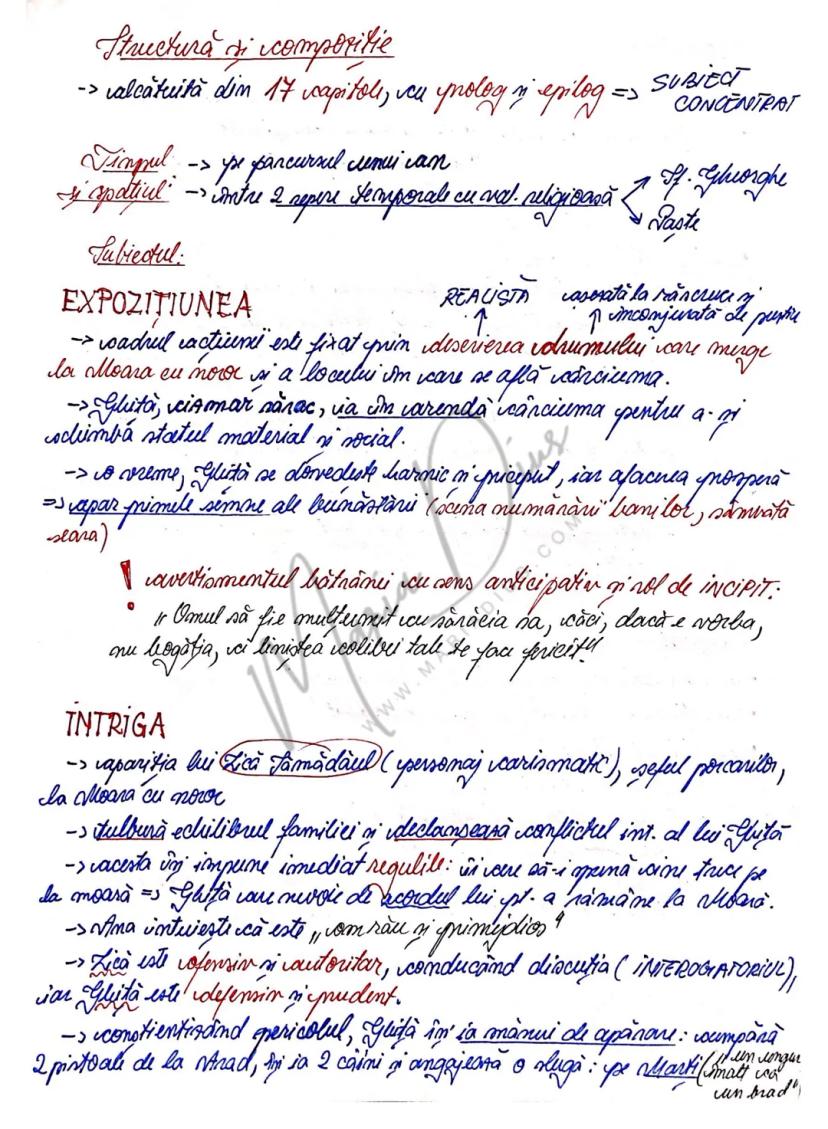 Structură și compoziție
-> alcătuită din 17 capitole, cu prolog și epilog => SUBIECT CONCENTRAT
Timpul și spațiul
-> pe parcursul unui an
-> între 2 repere temporale cu val. religioasă
Sf. Gheorghe
Paște
Subiectul:
EXPOZIȚIUNEA
REALISTĂ
așezată la răscruce și
înconjurată de pustie
-> cadrul acțiunii este fixat prin descrierea drumului care merge
la Moara cu noroc și a locului în care se află cârciuma.
-> Ghiță, cismar sărac, ia în arendă cârciuma pentru a-și
schimbă statul material și social.
-> o vreme, Ghiță se dovedește harnic și priceput, iar afacerea prosperă
=> apar primele semne ale bunăstării (scena numărării banilor, sâmbătă
seara)
! avertismentul bătrânei cu sens anticipativ și rol de INCIPIT:
,, Omul să fie mulțumit cu sărăcia sa, căci, dacă e vorba,
nu bogăția, ci liniștea colibei tale te face fericit."
INTRIGA
-> apariția lui Lică Sămădăul (personaj carismatic), șeful porcarilor,
la Moara cu noroc
-> tulbură echilibrul familiei și declanșează conflictul int. al lui Ghiță
-> acesta își impune imediat regulile: îi cere să-i spună cine trece pe
la moară => Ghiță are nevoie de acordul lui pt. a rămâne la Moară.
-> Ana intuiește că este ,,om rău și primejdios"
-> Lică este ofensiv și autoritar, conducând discuția (INTEROGATORIUL),
iar Ghiță este defensiv și prudent.
-> conștientizând pericolul, Ghiță își ia măsuri de apărare: cumpără
2 pistoale de la Arad, își ia 2 câini și angajează o slugă: pe Marți (,,un ungur
înalt ca
un brad")
Maria Dius
WWW.MARIADIUS.COM